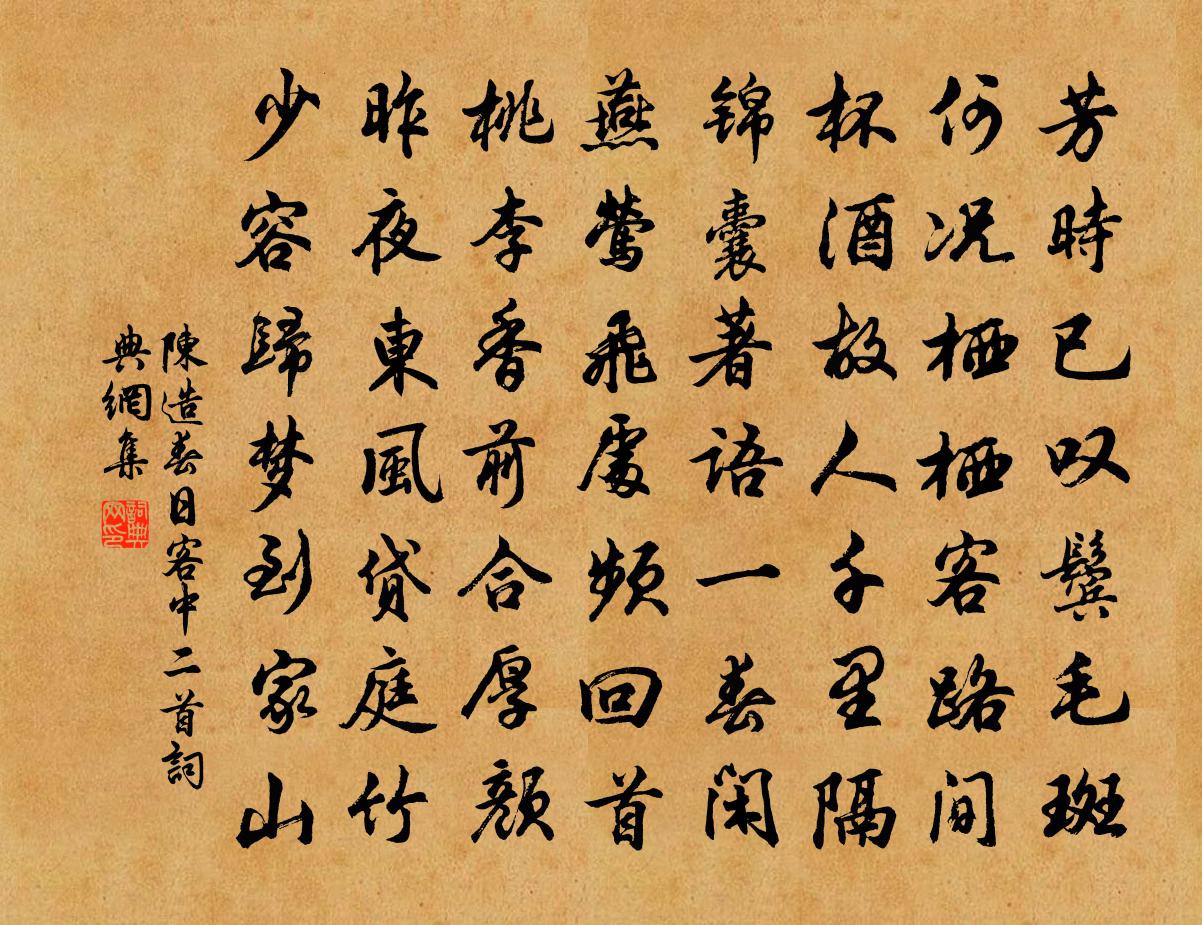 芳時已叹鬓毛斑
何况栖栖客路间
杯酒故人千里隔
锦囊著语一春闲
燕莺飛處频回首
桃李香前合厚颜
昨夜東風贷庭竹
少容歸梦到家山
陳造春日客中二首詞
典網集
詞典網印